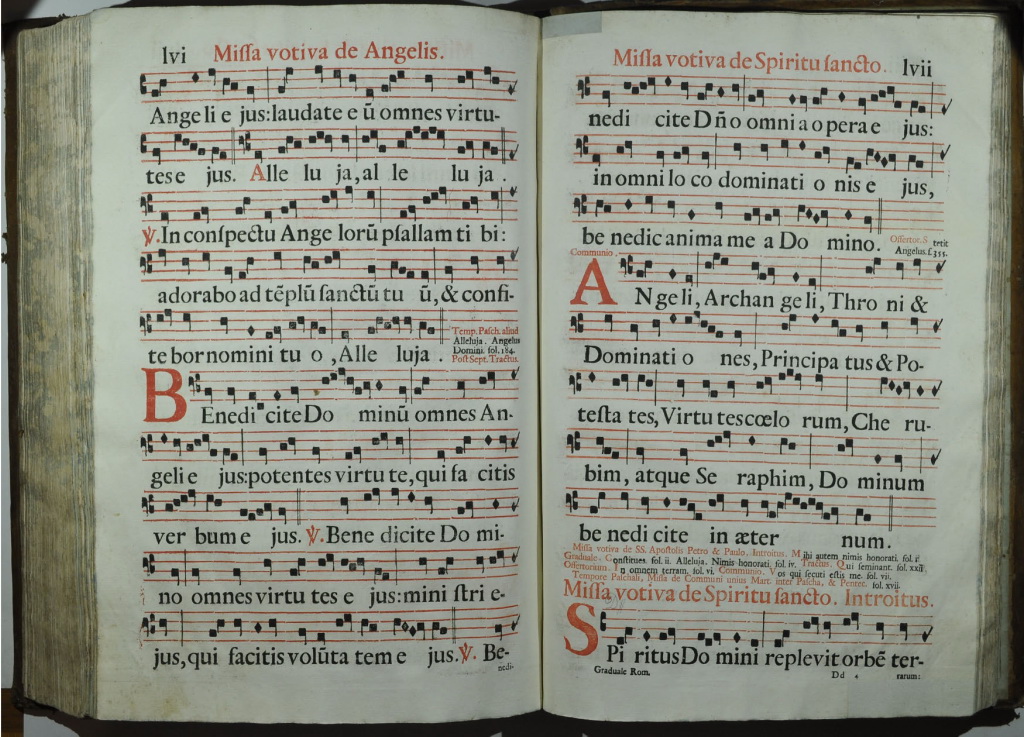 lvi Missa votiva de Angelis.
Ange li e jus: laudate e ū omnes virtu-
tes e jus. Alle lu ja, al le lu ja.
℣. In conspectu Ange lorū psallam ti bi:
adorabo ad tēplū sanctū tu ū, & confi-
te bor nomini tu o, Alle luja.
Temp. Pasch. aliud
Alleluja. Angelus
Domini. fol. 184.
Post Sept. Tractus.
BEnedi cite Do minū omnes An-
geli e jus: potentes virtu te, qui fa citis
ver bum e jus. ℣. Bene dicite Do mi-
no omnes virtu tes e jus: mini stri e-
jus, qui facitis volūta tem e jus. ℣. Be-
nedi-
Missa votiva de Spiritu sancto. lvii
nedi cite Dño omni a opera e jus:
in omni lo co dominati o nis e jus,
be nedic anima me a Do mino.
Offertor. Stetit
Angelus. f. 355.
Communio.
ANge li, Archan ge li, Thro ni &
Dominati o nes, Principa tus & Po-
testa tes, Virtu tes cœlo rum, Che ru-
bim, atque Se raphim, Do minum
be nedi cite in æter num.
Missa votiva de SS. Apostolis Petro & Paulo. Introitus. Mihi autem nimis honorati. fol. ij
Graduale. Constitues. fol. ii. Alleluja. Nimis honorati. fol. iv. Tractus. Qui seminant. fol. xxij
Offertorium. In omnem terram. fol. vi. Communio. Vos qui secuti estis me. fol. vii.
Tempore Paschali, Missa de Communi unius Mart. inter Pascha, & Pentec. fol. xvij.
Missa votiva de Spiritu sancto. Introitus.
SPi ritus Do mini replevit orbē ter-
Graduale Rom. Dd 4 rarum: